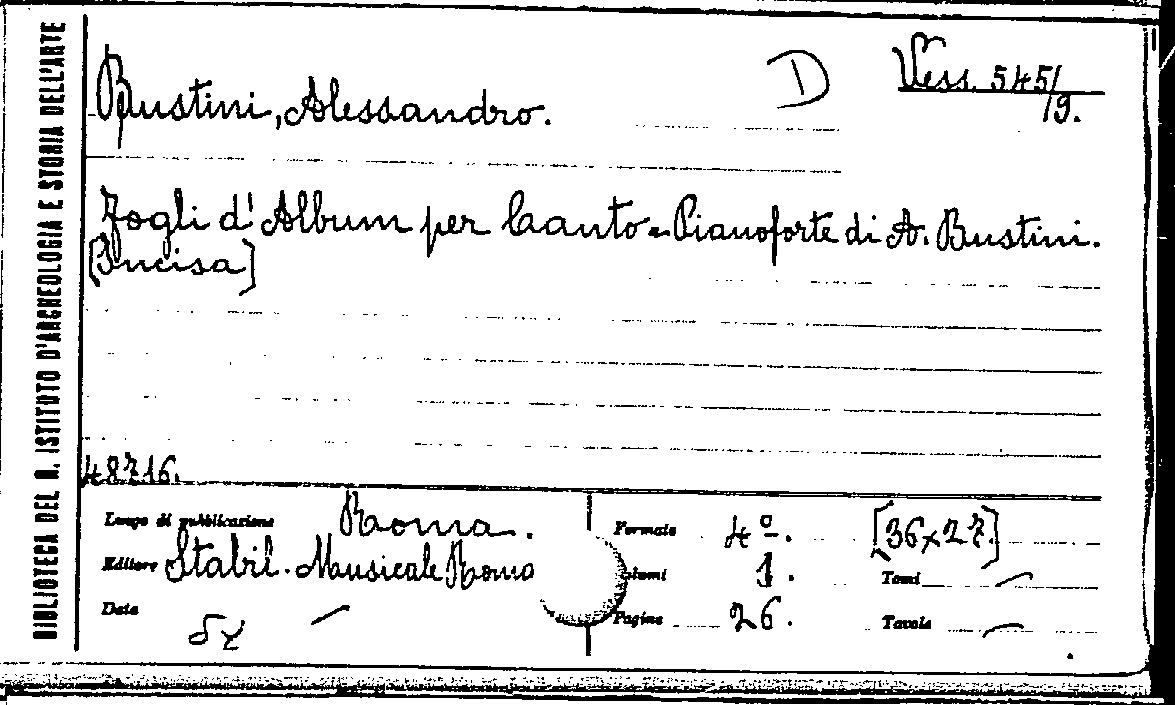 BIBLIOTECA DEL R. ISTITUTO D'ARCHEOLOGIA E STORIA DELL'ARTE
D
Vess. 545/
19.
Bustini, Alessandro.
Fogli d'Album per Canto e Pianoforte di A. Bustini.
[Incisa]
48716.
Luogo di pubblicazione Roma.
Formato 4º. [36x27]
Editore Stabil. Musicale Roma
Volumi 1. Tomi —
Data —
Pagine 26. Tavole —